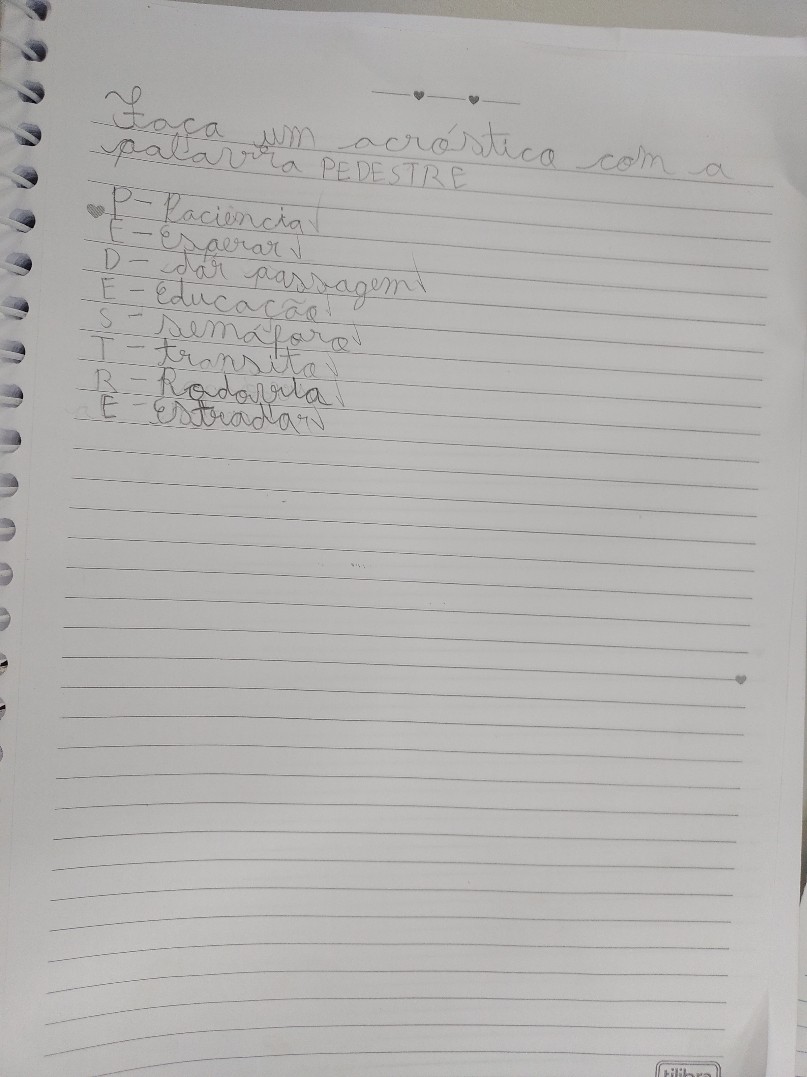 Faça um acróstico com a
palavra PEDESTRE
P - Paciência
E - Esperar
D - dar passagem
E - Educação
S - semáforo
T - transito
R - Rodovia
E - Estradas
tilibra